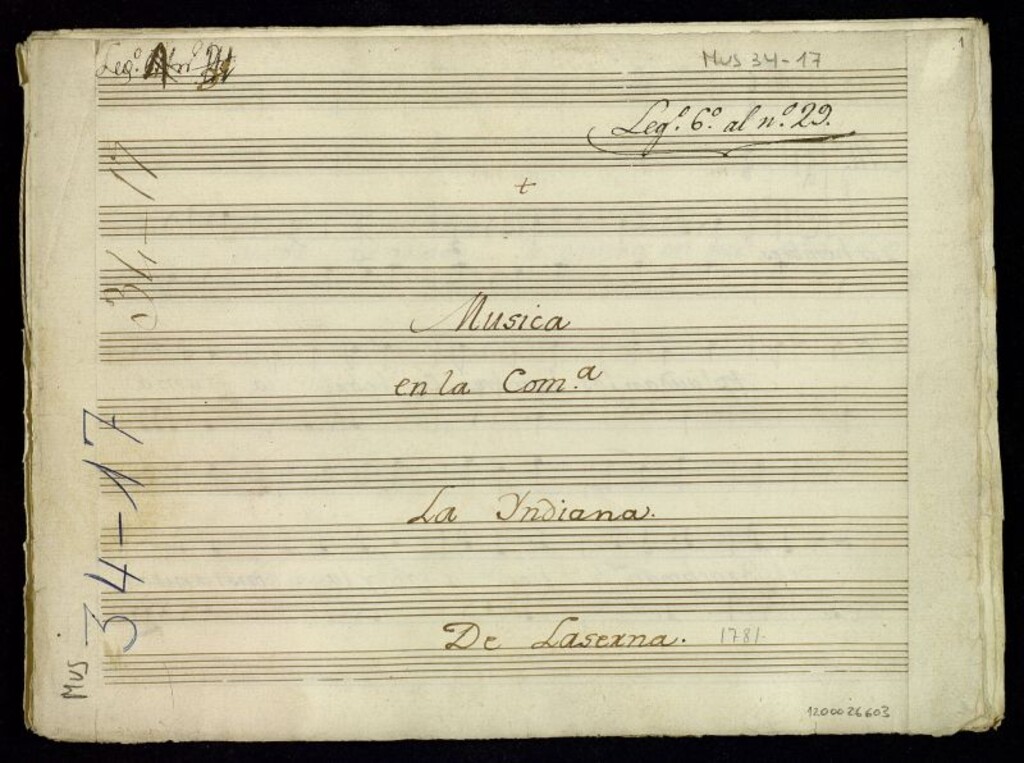 Leg.º
1
Mus 34-17
Leg.º 6.º al n.º 29.
34-17
+
Musica
en la Com.a
La Yndiana.
De Laserna. 1781.
MUS 34-17
1200026603